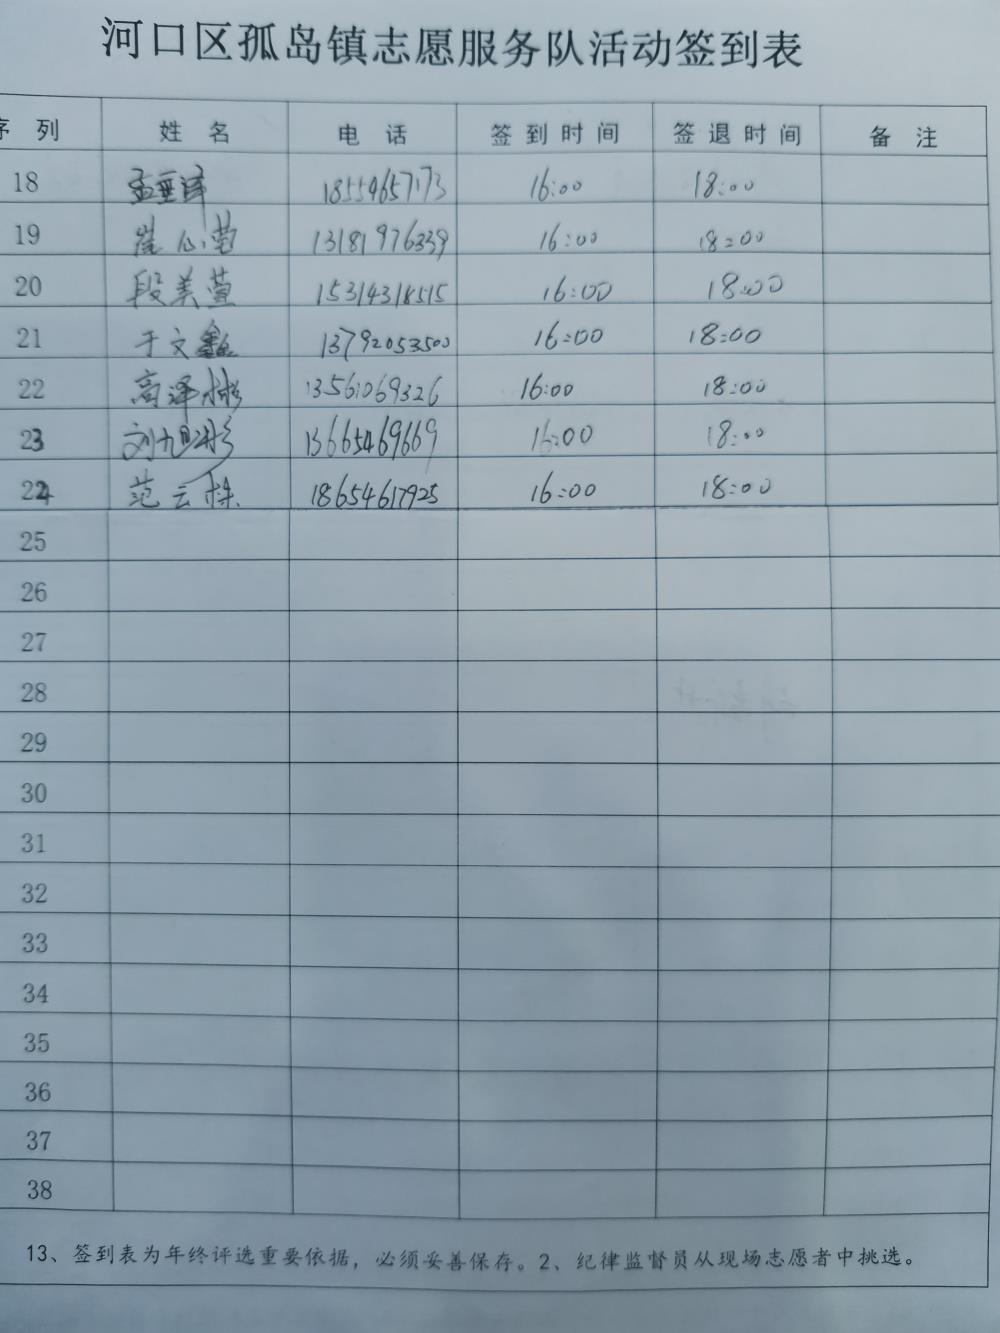 河口区孤岛镇志愿服务队活动签到表
序 列 姓 名 电 话 签到时间 签退时间 备 注
18 孟垂译 18554657173 16:00 18:00
19 崔心莹 13181976339 16:00 18:00
20 段美萱 15314318515 16:00 18:00
21 于文鑫 13792053500 16:00 18:00
22 高泽彬 13561069326 16:00 18:00
23 刘旭彤 13665469669 16:00 18:00
24 范云栋 18654617925 16:00 18:00
25
26
27
28
29
30
31
32
33
34
35
36
37
38
13、签到表为年终评选重要依据，必须妥善保存。2、纪律监督员从现场志愿者中挑选。